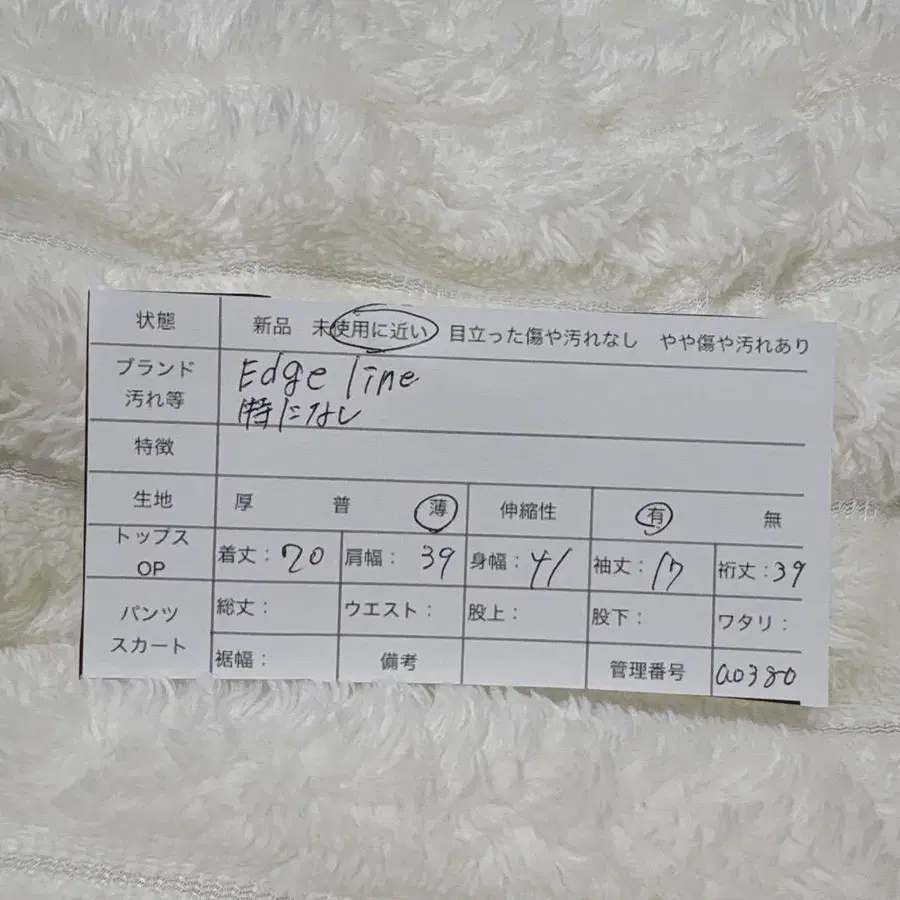 状態 新品 未使用に近い 目立った傷や汚れなし やや傷や汚れあり
ブランド Edge line
汚れ等 特になし
特徴
生地 厚 普 薄 伸縮性 有 無
トップス
OP 着丈：70 肩幅：39 身幅：41 袖丈：17 裄丈：39
パンツ
スカート
総丈： ウエスト： 股上： 股下： ワタリ：
裾幅： 備考 管理番号 a0380